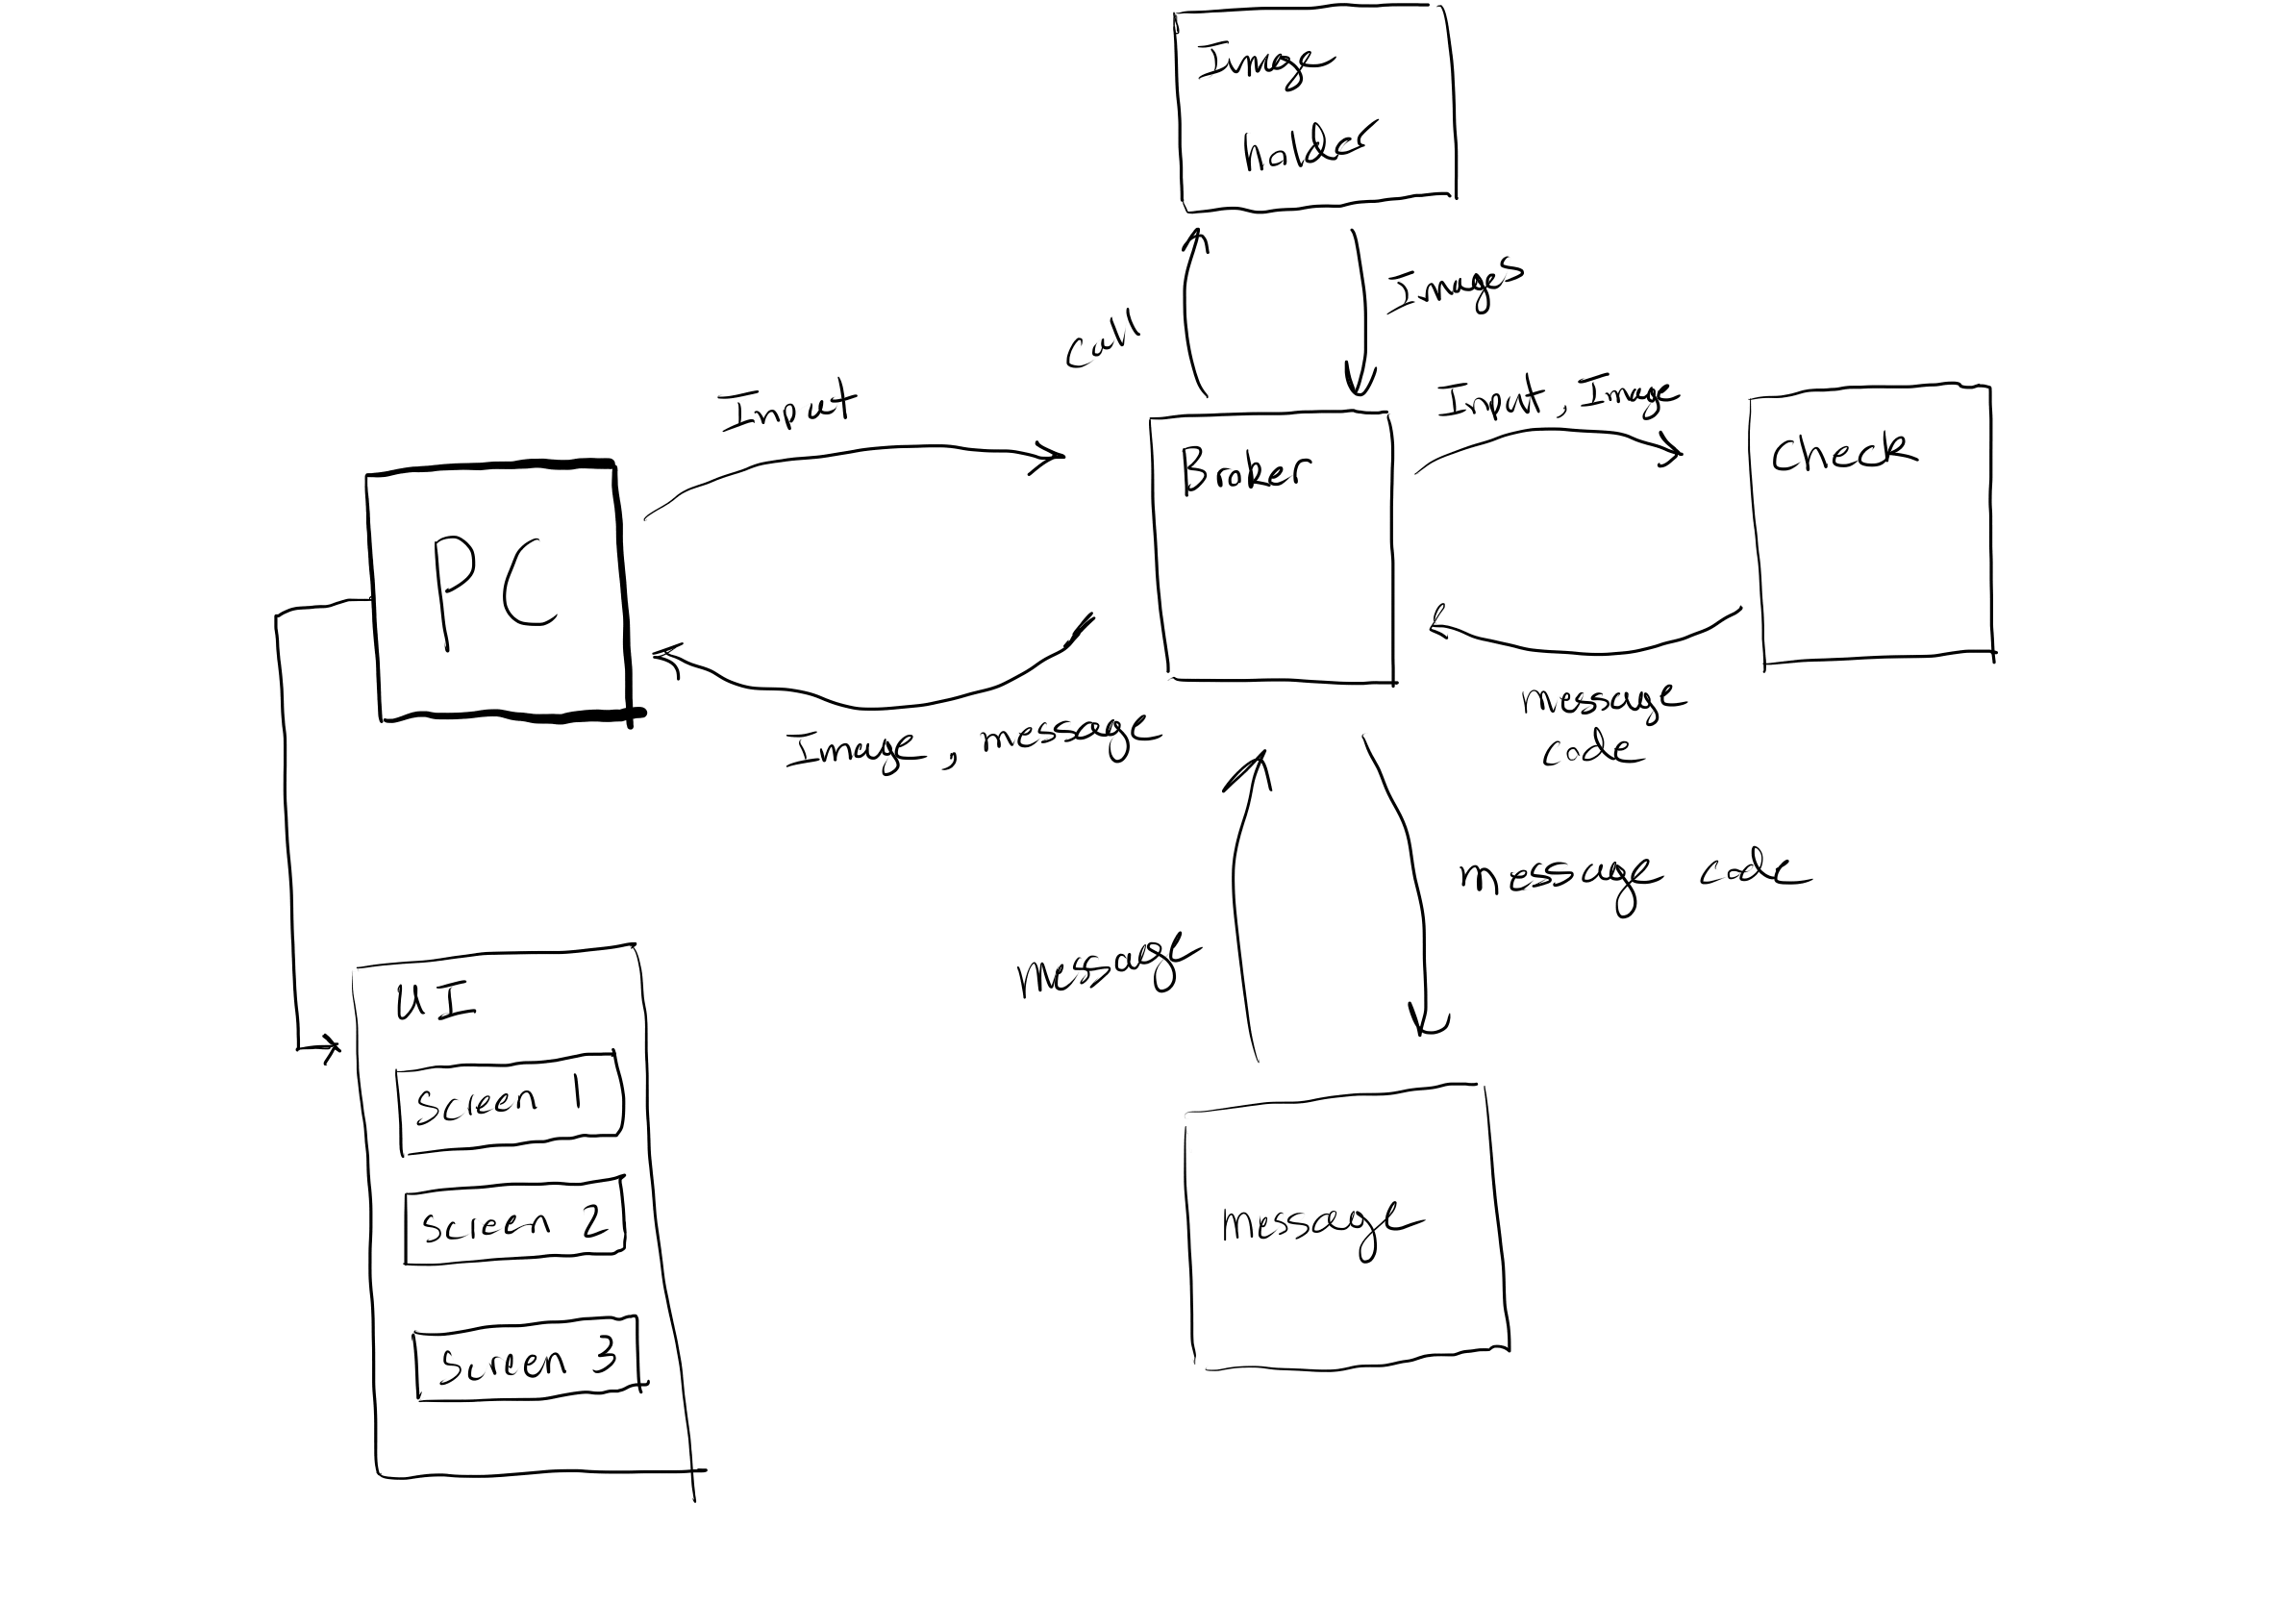 Image
holder
Images
call
Input
Input, Image
Broker
check
PC
Image, message
message
code
message code
message
UI
screen 1
screen 2
screen 3
message